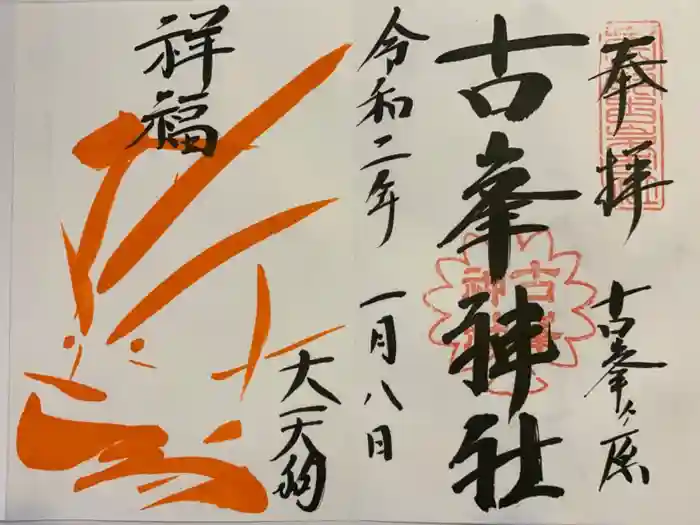 奉拝
古峯ヶ原
古峯神社
令和二年
一月八日
祥福
大天狗